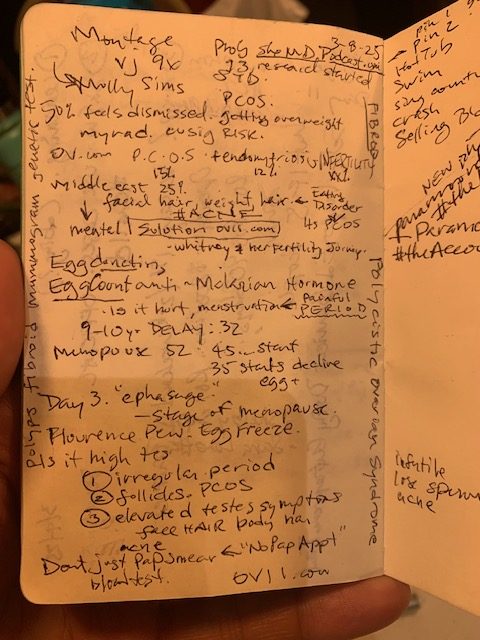 3-8-25
Montage
Prob SheMD.Podcast.com
vj 9x
93 research started
Molly Sims
PCOS.
50% feels dismissed. getting overweight
myriad. Risk.
OV.com P.C.O.S. + endometriosis/INFERTILITY
15% 12%
Middle east 25%
facial hair, weight, hair. ← Eating Disorder
#ACNE
4s PCOS
mental Solution ovii.com
- whitney & her Fertility Journey.
Egg donating
EggCount anti-Mularian Hormone
Is it hurt, menstruation ← Painful PERIOD
9-10yr DELAY: 32
Munopouse 52. 45... start
35 starts decline
egg +
Day 3. "ephasage"
- Stage of menopause.
Flourence Pew. Egg Freeze.
Is it high tes
① irregular period
② follicles. PCOS
③ elevated testes symptoms
face HAIR body hair
acne
Dont just PapSmear ← "No Pap Appt"
blood test.
OVII.com
Polyps fibroid mummogram genetic test.
FIBROID
Polycistic ovarian Syndrome
pin 1
→ Pin 2
HotTub
Swim
sing country
crash
Selling
NEW
paramount
#the
Paramo
#theAccou
infutile
low sperm
acne